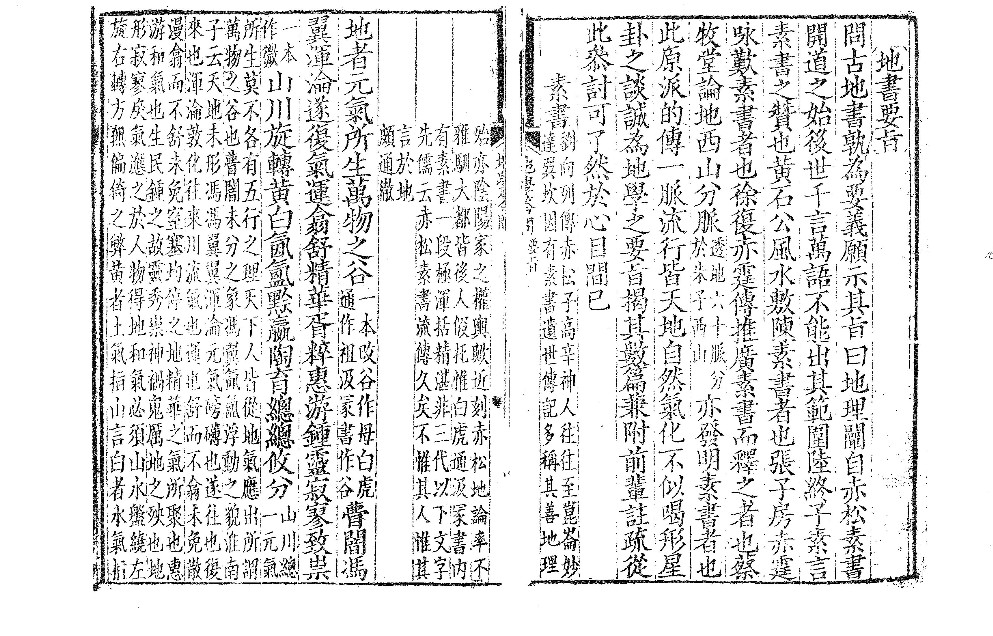 地書要旨
問古地書孰為要義願示其旨曰地理闢自赤松素書
開道之始後世千言萬語不能出其範圍陸終子素言
素書之贊也黃石公風水敷陳素書者也張子房赤霆
咏歎素書者也徐復赤霆傳推廣素書而釋之者也蔡
牧堂論地西山分脈透地六十脈分於朱子西山亦發明素書者也
此原派的傳一脈流行皆天地自然氣化不似喝形星
卦之談誠為地學之要旨揭其數篇兼附前輩註疏從
此叅討可了然於心目間已
素書劉向列傳赤松子高辛神人往往至崑崙妙
達要坎固有素書遺世傳記多稱其善地理
殆亦陰陽家之權輿歟近刻赤松地論率不
雅馴大都皆後人假托惟白虎通汲冢書內
有素書一段極渾括精湛非三代以下文字
先儒云赤松素書流傳久矣不惟其人惟其
言於地
頗通徹
地者元氣所生萬物之谷一本改谷作母白虎通作祖汲冢書作谷瞢闇馮
翼渾淪遂復氣運翕舒精華胥粹惠游鍾靈寂寥致祟
一本作徽山川旋轉黃白氤氳黙贏陶育總總攸分山川總一元氣
所生莫不各有五行之理天下人皆從地氣應出所謂
萬物之谷也瞢闇未分之象馮翼氤氳浮動之貌淮南
子云天地未形馮馮翼翼渾淪元氣磅礴也遂往也復
來也渾淪敦化往來川流氣也運也舒而不翕未免散
漫翕而不舒未免窒塞均停之地精華之氣所聚也惠
游和氣也生民鍾之故靈秀崇神禍鬼厲地之殃也地
形寂寥戾氣應之於人物得地和氣必須山水盤繞左
旋右轉方無偏倚之弊黃者土氣指山言白者水氣指